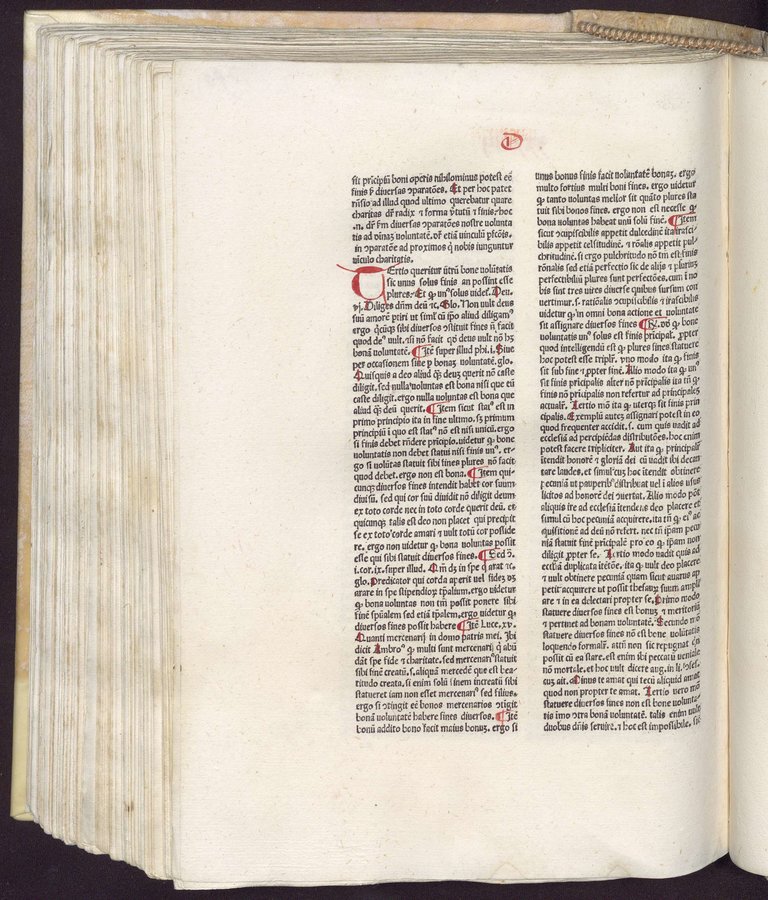 D
sit prīcipiū boni operis nihilominus potest eē
finis ꝑ diuersas ꝯparatōes. Et per hoc patet
rn̄sio ad illud quod vltimo querebatur quare
charitas dr̄ radix ⁊ forma v̄tutū ⁊ finis. hoc
.n. dr̄ ꝑm diuersas ꝯparatōes nostre volunta
tis ad diuinaȝ voluntatē. vn̄ etiā vinculū ꝑfcōis.
in ꝯparatōe ad proximos q̇ nobis iunguntur
vīculo charitatis.
Tertio queritur vtrū bone volūtatis
sic vnus solus finis an possint esse
plures. Et ꝙ vnꝰ solus videt͛. Deu.
vj. Diliges dn̄m deū ⁊c̄. Glo. Non vult deus
suū amorē ꝑtiri vt simĺ cū ip̄o aliud diligamꝰ
ergo q̇cūqȝ sibi diuersos ꝯstituit fines n̄ facit
quod deꝰ vult. si nō facit qd̄ deus vult nō hȝ
bonā voluntatē. Itē super illud phi.i. Siue
per occasionem siue ꝑ bonaȝ voluntatē. glo.
Quisquis a deo aliud q̄ȝ deuȝ querit nō caste
diligit. sed nulla voluntas est bona nisi que eū
caste diligit. ergo nulla voluntas est bona que
aliud q̄ȝ deū querit. Item sicut statꝰ est in
primo principio ita in fine vltimo. sȝ primum
principiū ī quo est statꝰ nō est nisi vnicū. ergo
si finis debet rn̄dere prīcipio. videtur ꝙ bone
voluntatis non debet statui nisi finis vnꝰ. er-
go si volūtas statuit sibi fines plures nō facit
quod debet. ergo non est bona. Itē qui-
cunqȝ diuersos fines intendit habet cor suum
diuisū. sed qui cor suū diuidit nō diligit deum
ex toto corde nec in toto corde querit deū. et
quicunqȝ talis est deo non placet qui precipit
se ex toto corde amari ⁊ vult totū cor posside
re. ergo non videtur ꝙ bona voluntas possit
esse qui sibi statuit diuersos fines. Sed ꝯ.
i.cor.ix. super illud. Qm̄ dȝ in spe q̇ arat ⁊c̄.
glo. Predicator qui corda aperit vel fides dȝ
arare in spe stipendioꝝ tp̄alium. ergo videtur
ꝙ bona voluntas non tm̄ possit ponere sibi
finē spūalem sed etiā tp̄alem. ergo videtur ꝙ
diuersos fines possit habere Itē Luce.xv.
Quanti mercenarij in domo patris mei. Ibi
dicit Ambroꝰ ꝙ multi sunt mercenarij q̇ abū
dāt spe fide ⁊ charitate. sed mercenariꝰ statuit
sibi finē creatū. s. aliquā mercedē que est bea-
titudo creata. si enim solū finem increatū sibi
statueret iam non esset mercenariꝰ sed filius.
ergo si ꝯtingit eē bonos mercenarios ꝯtigit
bonā voluntatē habere fines diuersos. Itē
bonū addito bono facit maius bonuȝ. ergo si
vnus bonus finis facit voluntatē bonaȝ. ergo
multo fortius multi boni fines. ergo videtur
ꝙ tanto voluntas melior sit quāto plures sta
tuit sibi bonos fines. ergo non est necesse ꝙ
bona voluntas habeat vnū solū finē. Item
sicut ꝯcupiscibilis appetit dulcedinē ita irasci-
bilis appetit celsitudinē. ⁊ rōnalis appetit pul-
chritudinē. si ergo pulchritudo nō tm̄ est finis
rōnalis sed etia perfectio sic de alijs ⁊ plurium
perfectibiliū plures sunt perfectōes. cum ī no
bis sint tres vires diuerse quibus sursum con
uertimur. s. ratiōalis ꝯcupiscibilis ⁊ irascibilis
videtur ꝙ in omni bona actione et voluntate
sit assignare diuersos fines R̄n. vō ꝙ bone
voluntatis vnꝰ solus est finis prīcipal͛. ꝓpter
quod intelligendū est ꝙ plures fines statuere
hoc potest esse tripl͛r. vno modo ita ꝙ finis
sit sub fine ⁊ ꝓpter finē. Alio modo ita ꝙ vnꝰ
sit finis prīcipalis alter nō prīcipalis ita tn̄ ꝙ
finis nō prīcipalis non refertur ad principaleȝ
actual͛r. Tertio mō ita ꝙ vterqȝ sit finis prin
cipalis. Exemplū autē assignari potest in eo
quod frequenter accidit. s. cum quis vadit ad
ecclesiā ad percipiēdas distributōes. hoc enim
potest facere tripliciter. Aut ita ꝙ principal͛r
itendit honorē ⁊ gloriā dei cū vadit ibi decan
tare laudes. et simul cuȝ hoc itendit obtinere
pecuniā vt pauperibꝰ distribuat vel ī alios vsus
licitos ad honorē dei ꝯuertat. Alio modo pōt
aliquis ire ad ecclesiā itendens deo placere et
simul cū hoc pecuniā acquirere. ita tn̄ ꝙ eiꝰ ac
quisitionē ad deū nō refert. nec tn̄ ip̄am pecu
niā statuit finē principalē pro eo ꝙ ip̄am non
diligit ꝓpter se. Tertio modo vadit quis ad
eccl̄iaȝ duplicata itētōe. ita ꝙ vult deo placere
⁊ vult obtinere pecuniā quam sicut auarus ap
petit acquirere vt possit thesauȝ suum ampli
are ⁊ in ea delectari propter se. Primo modo
statuere diuersos fines est bonuȝ ⁊ meritoriū
⁊ pertinet ad bonam voluntatē. Secundo mō
statuere diuersos fines nō est bene volūtatis
loquendo formal͛r. attn̄ non sic repugnat qn̄
possit cū ea stare. est enim ibi peccatū veniale
nō mortale. et hoc vult dicere aug. in li. ꝯfes.
cuȝ ait. Minus te amat qui tecū aliquid amat
quod non propter te amat. Tertio vero mō
statuere diuersos fines non est bone volunta-
tis īmo ꝯtra bonā voluntatē. talis enim vult
duobus dn̄is seruire. ⁊ hoc est impossibile. sic